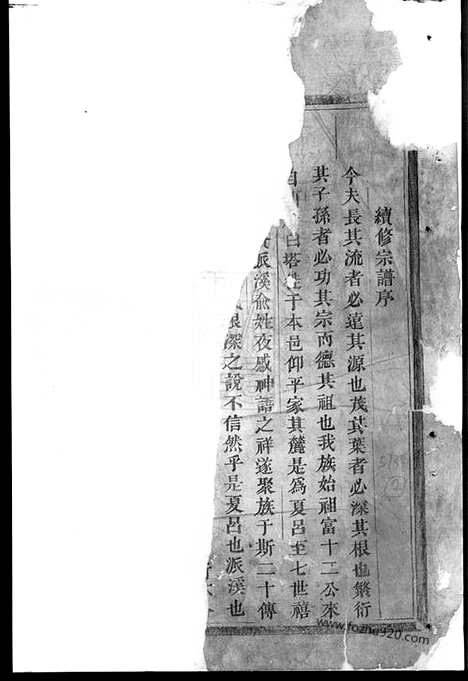 續修宗譜序
今夫長其流者必遠其源也茂其葉者必深其根也繁衍
其子孫者必功其宗而德其祖也我族始祖富十二公來
自 白塔 于本邑仰平家其麓是為夏呂至七世禧
派溪俞姓夜感神語之祥遂聚族于斯二十傳
根深之說不信然乎是夏呂也派溪也
www.fozhu920.com